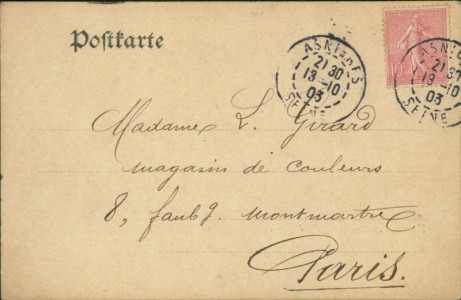 Postkarte
ASNIERES
21 30
13-10
03
SEINE
10
ASNIERES
21 30
13-10
03
SEINE
Madame L. Girard
magasin de couleurs
8, faubg. Montmartre
Paris.